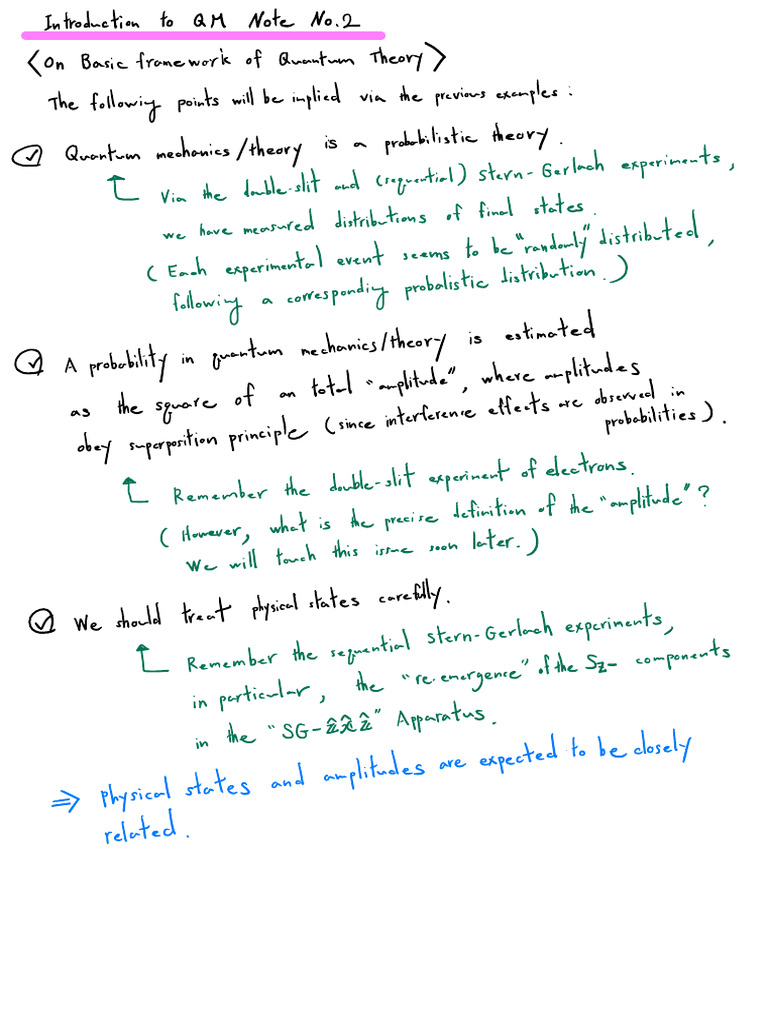 Introduction to QM Note No.2
〈On Basic framework of Quantum Theory〉
The following points will be implied via the previous examples:
Quantum mechanics/theory is a probabilistic theory.
Via the double-slit and (sequential) Stern-Gerlach experiments,
we have measured distributions of final states.
(Each experimental event seems to be "randomly" distributed,
following a corresponding probalistic distribution.)
A probability in quantum mechanics/theory is estimated
as the square of an total "amplitude", where amplitudes
obey superposition principle (since interference effects are observed in
probabilities).
Remember the double-slit experiment of electrons.
(However, what is the precise definition of the "amplitude"?
We will touch this issue soon later.)
We should treat physical states carefully.
Remember the sequential Stern-Gerlach experiments,
in particular, the "re-emergence" of the Sz- components
in the "SG-ẑx̂ẑ" Apparatus.
⇒ Physical states and amplitudes are expected to be closely
related.